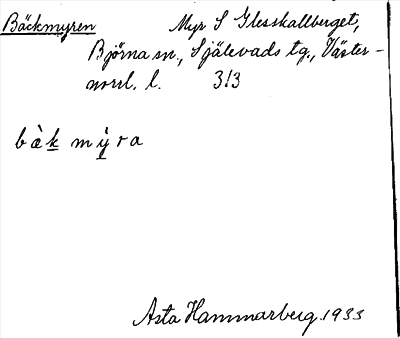 Bäckmyren Myr S Glesskallberget,
Björna sn., Själevads tg., Väster-
norrl. l. 313
bæ̀k mỳra
Asta Hammarberg 1933